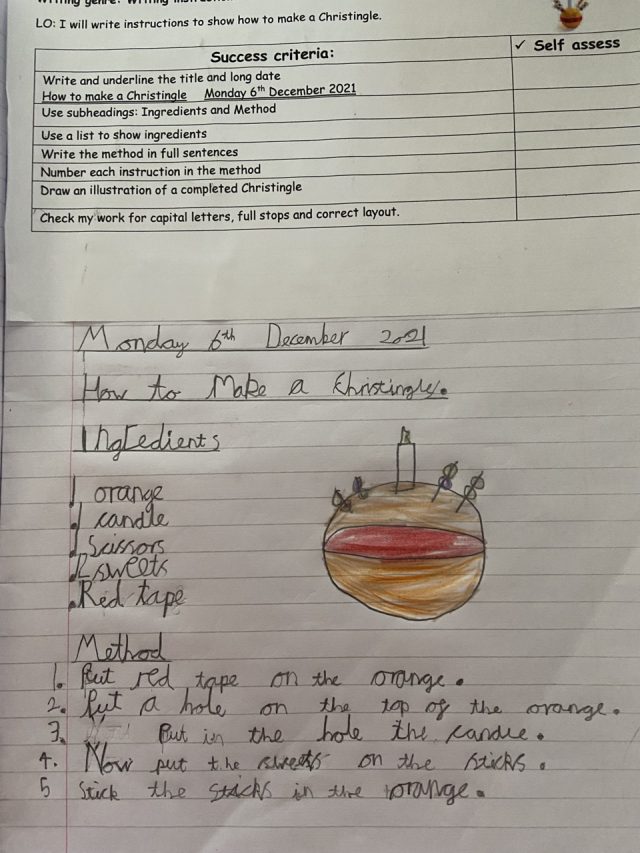 LO: I will write instructions to show how to make a Christingle.
Success criteria:
✓ Self assess
Write and underline the title and long date
How to make a Christingle Monday 6th December 2021
Use subheadings: Ingredients and Method
Use a list to show ingredients
Write the method in full sentences
Number each instruction in the method
Draw an illustration of a completed Christingle
Check my work for capital letters, full stops and correct layout.
Monday 6th December 2021
How to Make a Christingle.
Ingredients
1 orange
1 candle
1 Scissors
2 sweets
Red tape
Method
1. Put red tape on the orange.
2. Put a hole on the top of the orange.
3. Put in the hole the candle.
4. Now put the sweets on the sticks.
5 Stick the sticks in the orange.